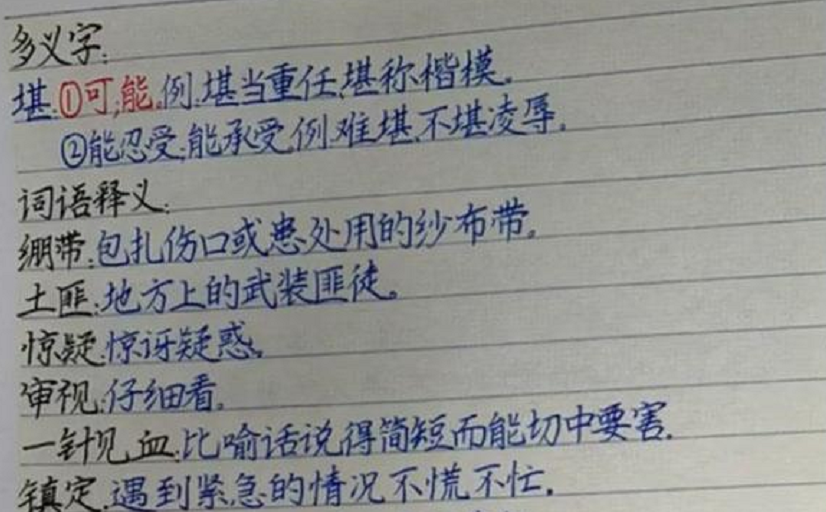 多义字:
堪:①可,能。例:堪当重任,堪称楷模。
②能忍受,能承受,例:难堪,不堪凌辱。
词语释义:
绷带:包扎伤口或患处用的纱布带。
土匪:地方上的武装匪徒。
惊疑:惊讶疑惑。
审视:仔细看。
一针见血:比喻话说得简短而能切中要害.
镇定:遇到紧急的情况不慌不忙.